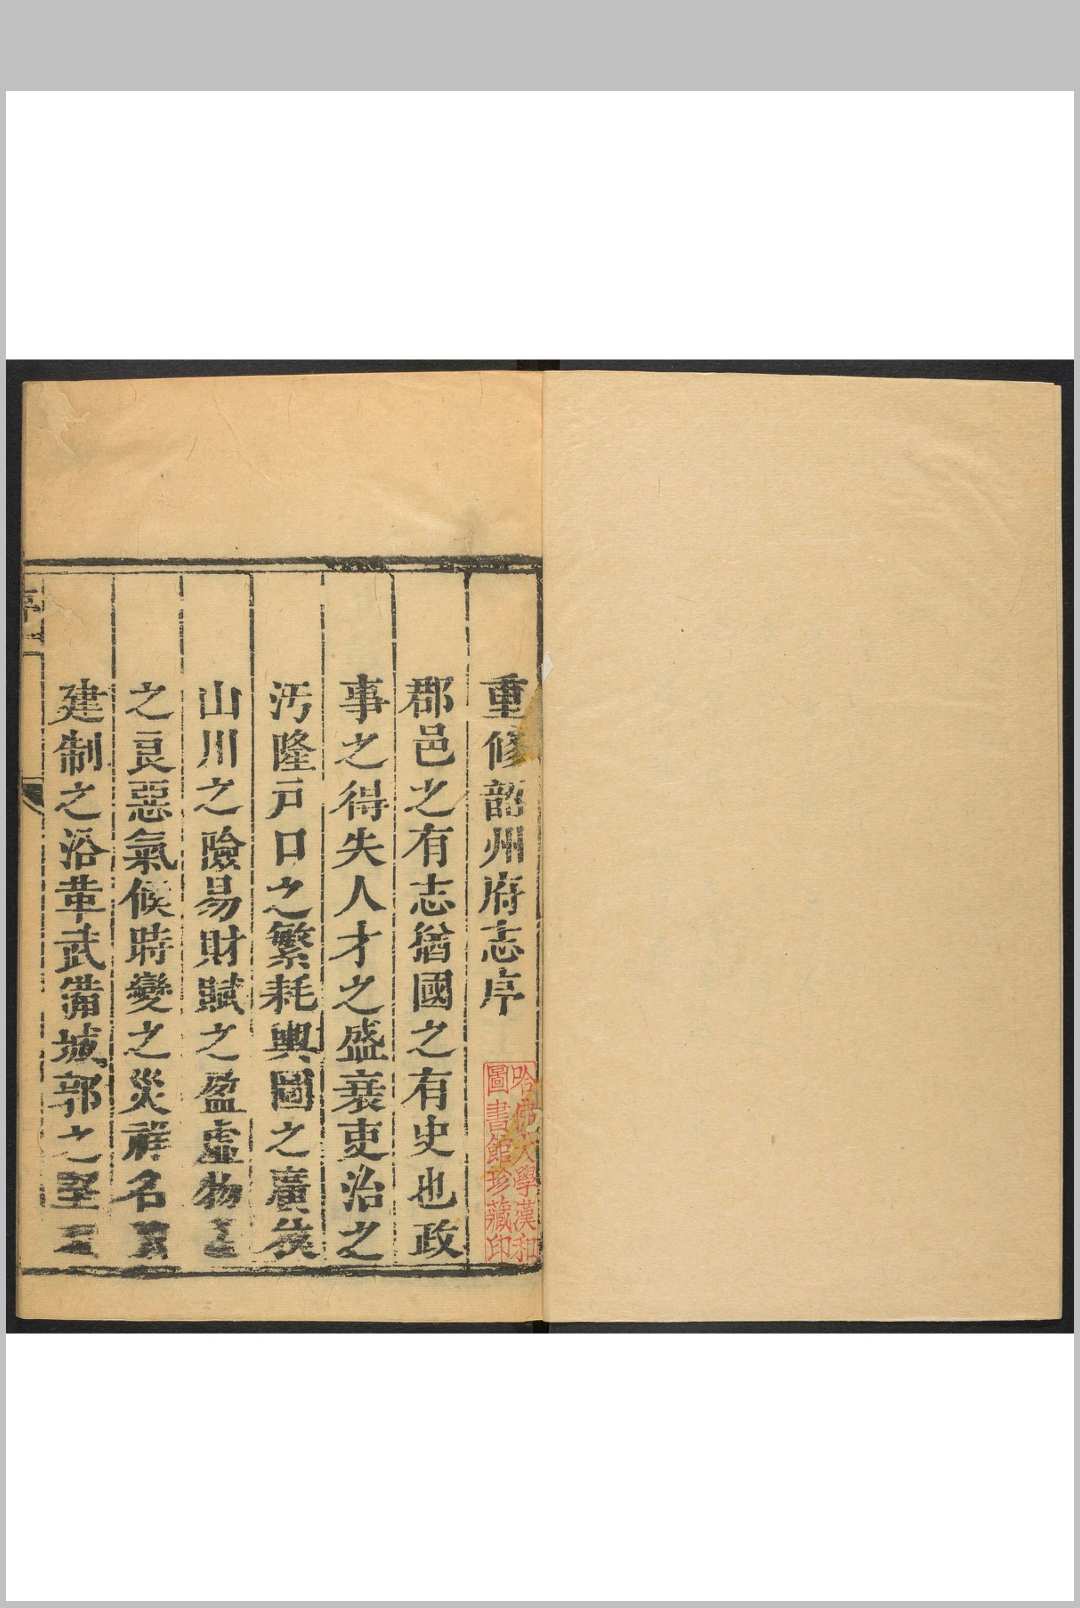 重修韶州府志序
哈佛大學漢和
圖書館珍藏印
郡邑之有志猶國之有史也政
事之得失人才之盛衰吏治之
汚隆戸口之繁耗輿圖之廣狹
山川之險易財賦之盈虛物
之良惡氣候時變之災祥名
建制之沿革武備城郭之堅
序